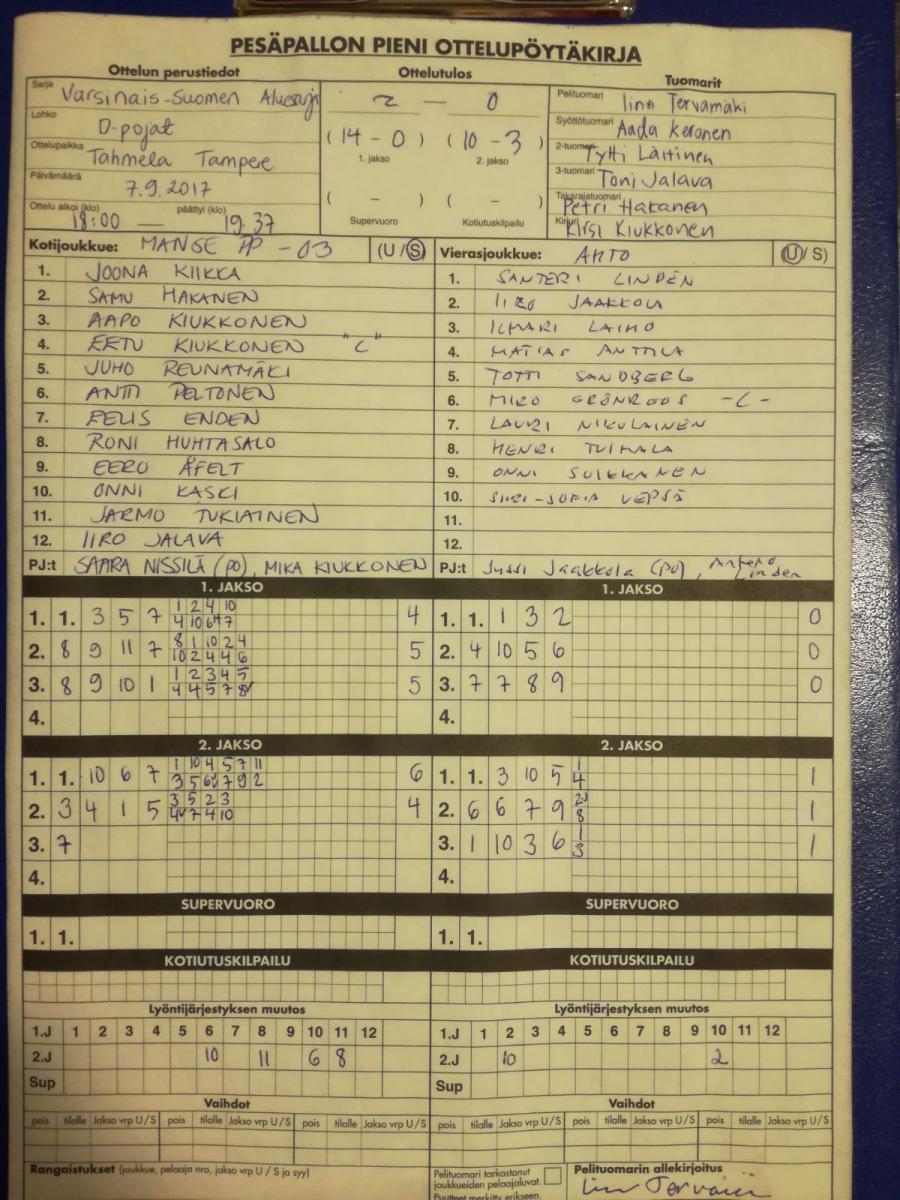 PESÄPALLON PIENI OTTELUPÖYTÄKIRJA
Ottelun perustiedot Ottelutulos Tuomarit
Sarja Varsinais-Suomen Aluesarja
Lohko D-pojat
Ottelupaikka Tahmela Tampere
Päivämäärä 7.9.2017
Ottelu alkoi (klo) 18:00 — päättyi (klo) 19.37
2 — 0
(14 - 0) (10 - 3)
1. jakso 2. jakso
( - ) ( - )
Supervuoro Kotiutuskilpailu
Pelituomari Iina Tervamäki
Syöttötuomari Aada Keronen
2-tuomari Tytti Laitinen
3-tuomari Toni Jalava
Takarajatuomari Petri Hakanen
Kirjuri Kirsi Kiukkonen
Kotijoukkue: MANSE PP -03 (U/S)
1. JOONA KIIKKA
2. SAMU HAKANEN
3. AAPO KIUKKONEN
4. EETU KIUKKONEN "C"
5. JUHO REUNAMÄKI
6. ANTTI PELTONEN
7. EELIS ENDEN
8. RONI HUHTASALO
9. EERO ÅFELT
10. ONNI KASKI
11. JARMO TUKIAINEN
12. IIRO JALAVA
PJ:t SAARA NISSILÄ (PO), MIKA KIUKKONEN
Vierasjoukkue: AHTO (U/S)
1. SANTERI LINDÉN
2. IIRO JAAKKOLA
3. ILMARI LAIHO
4. MATIAS ANTTILA
5. TOTTI SANDBERG
6. MIRO GRÖNROOS -C-
7. LAURI NIKULAINEN
8. HENRI TUIMALA
9. ONNI SUIKKANEN
10. SIIRI-SOFIA VEPSÄ
11.
12.
PJ:t Jussi Jaakkola (PO), Antero Linden
1. JAKSO
1. 1. 3 5 7 1 2 4 10 4
4 10 6 7
2. 8 9 11 7 8 1 10 2 4 5
10 2 4 4 6
3. 8 9 10 1 1 2 3 4 5 5
4 4 5 7 8
4.
1. JAKSO
1. 1. 1 3 2 0
2. 4 10 5 6 0
3. 7 7 8 9 0
4.
2. JAKSO
1. 1. 10 6 7 1 10 4 5 7 11 6
3 5 6 7 9 2
2. 3 4 1 5 3 5 2 3 4
4 7 4 10
3. 7
4.
2. JAKSO
1. 1. 3 10 5 1 1
4
2. 6 6 7 9 2 1
8
3. 1 10 3 6 1 1
3
4.
SUPERVUORO SUPERVUORO
1. 1. 1. 1.
KOTIUTUSKILPAILU KOTIUTUSKILPAILU
Lyöntijärjestyksen muutos
1.J 1 2 3 4 5 6 7 8 9 10 11 12
2.J 10 11 6 8
Sup
Lyöntijärjestyksen muutos
1.J 1 2 3 4 5 6 7 8 9 10 11 12
2.J 10 2
Sup
Vaihdot Vaihdot
pois tilalle Jakso vrp U/S pois tilalle Jakso vrp U/S pois tilalle Jakso vrp U/S
pois tilalle Jakso vrp U/S pois tilalle Jakso vrp U/S pois tilalle Jakso vrp U/S
Rangaistukset (joukkue, pelaaja nro, jakso vrp U / S ja syy)
Pelituomari tarkastanut
joukkueiden pelaajaluvat.
Puutteet merkitty erikseen.
Pelituomarin allekirjoitus